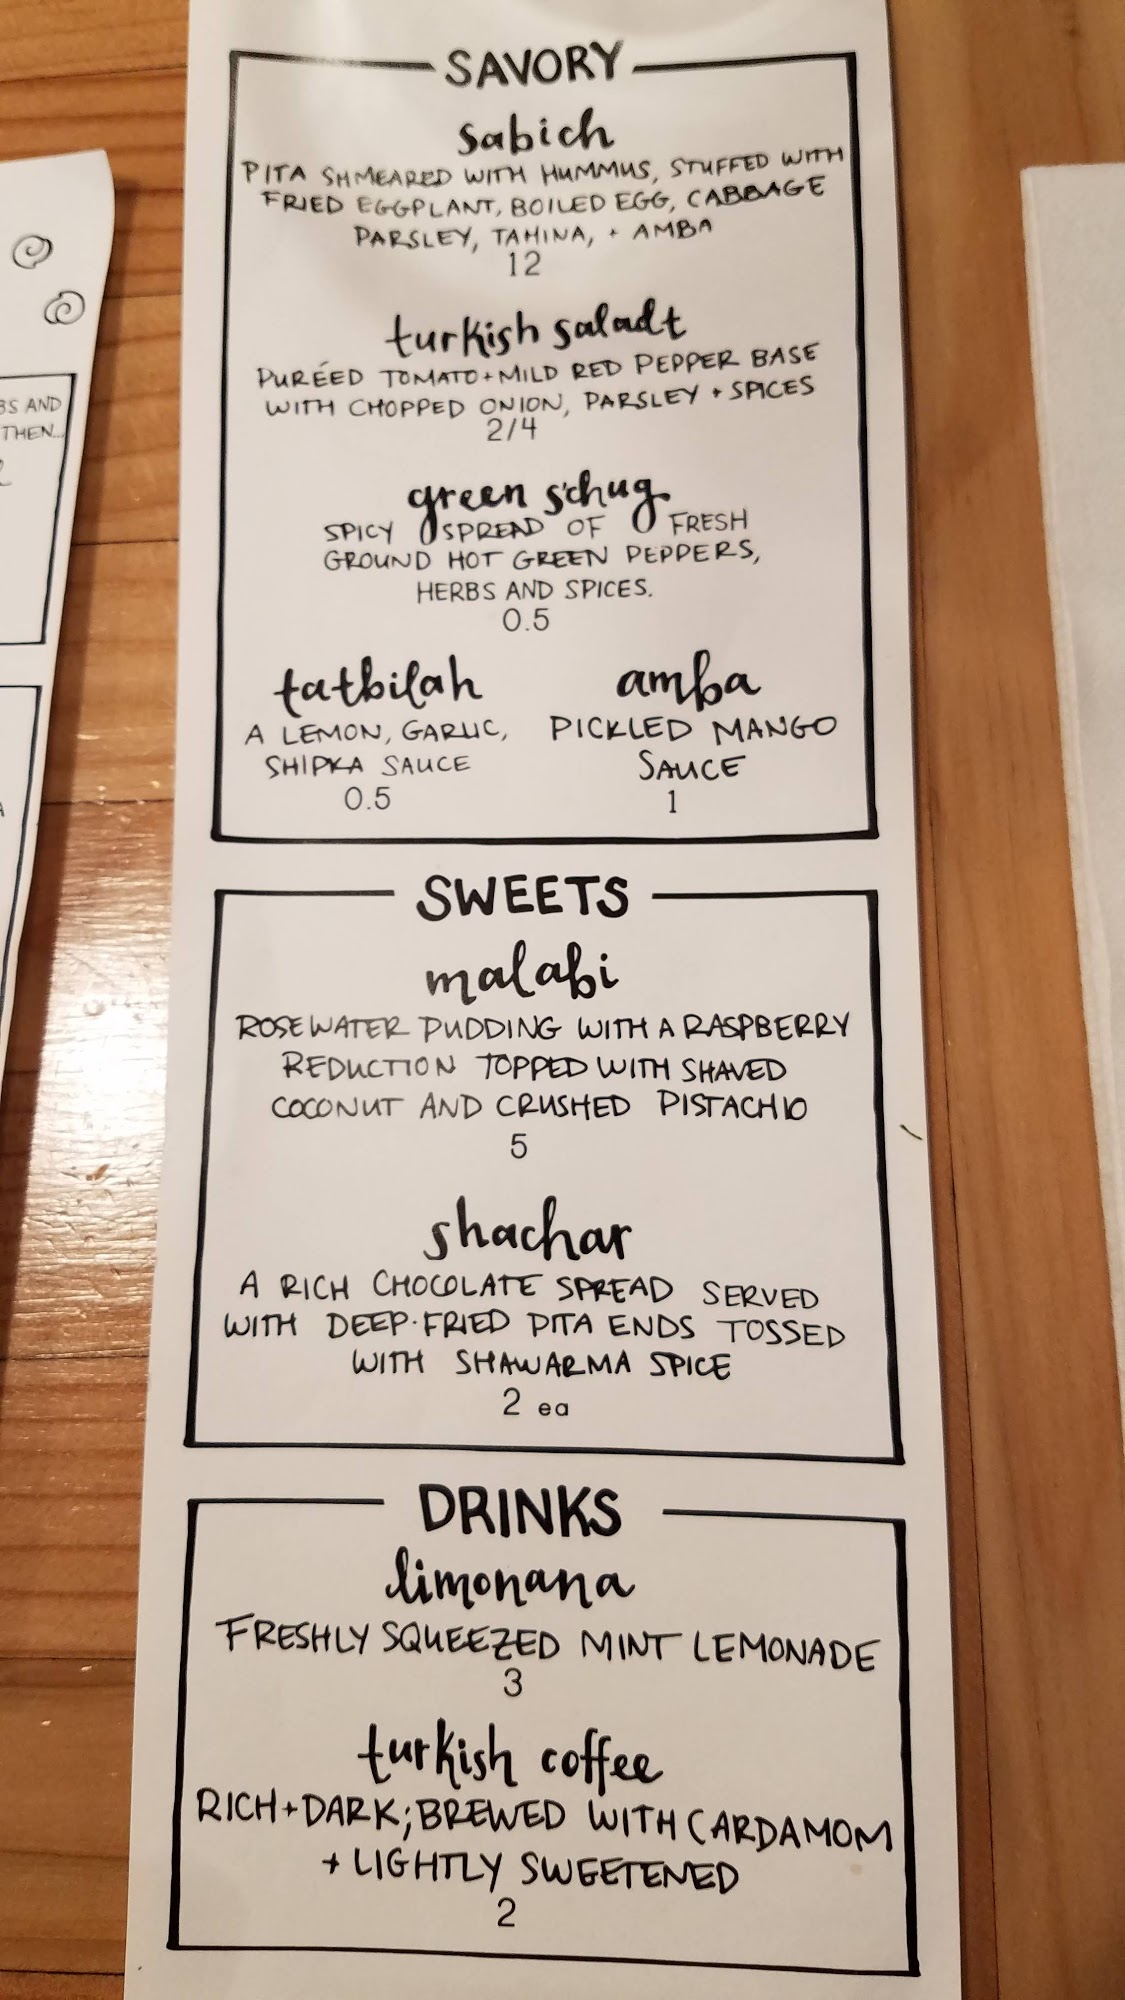 SAVORY
sabich
PITA SHMEARED WITH HUMMUS, STUFFED WITH
FRIED EGGPLANT, BOILED EGG, CABBAGE
PARSLEY, TAHINA, + AMBA
12
turkish saladt
PURÉED TOMATO + MILD RED PEPPER BASE
WITH CHOPPED ONION, PARSLEY + SPICES
2/4
green s'chug
SPICY SPREAD OF FRESH
GROUND HOT GREEN PEPPERS,
HERBS AND SPICES.
0.5
tatbilah
A LEMON, GARLIC,
SHIPKA SAUCE
0.5
amba
PICKLED MANGO
SAUCE
1
SWEETS
malabi
ROSEWATER PUDDING WITH A RASPBERRY
REDUCTION TOPPED WITH SHAVED
COCONUT AND CRUSHED PISTACHIO
5
shachar
A RICH CHOCOLATE SPREAD SERVED
WITH DEEP-FRIED PITA ENDS TOSSED
WITH SHAWARMA SPICE
2 ea
DRINKS
limonana
FRESHLY SQUEEZED MINT LEMONADE
3
turkish coffee
RICH + DARK; BREWED WITH CARDAMOM
+ LIGHTLY SWEETENED
2
AND
THEN...